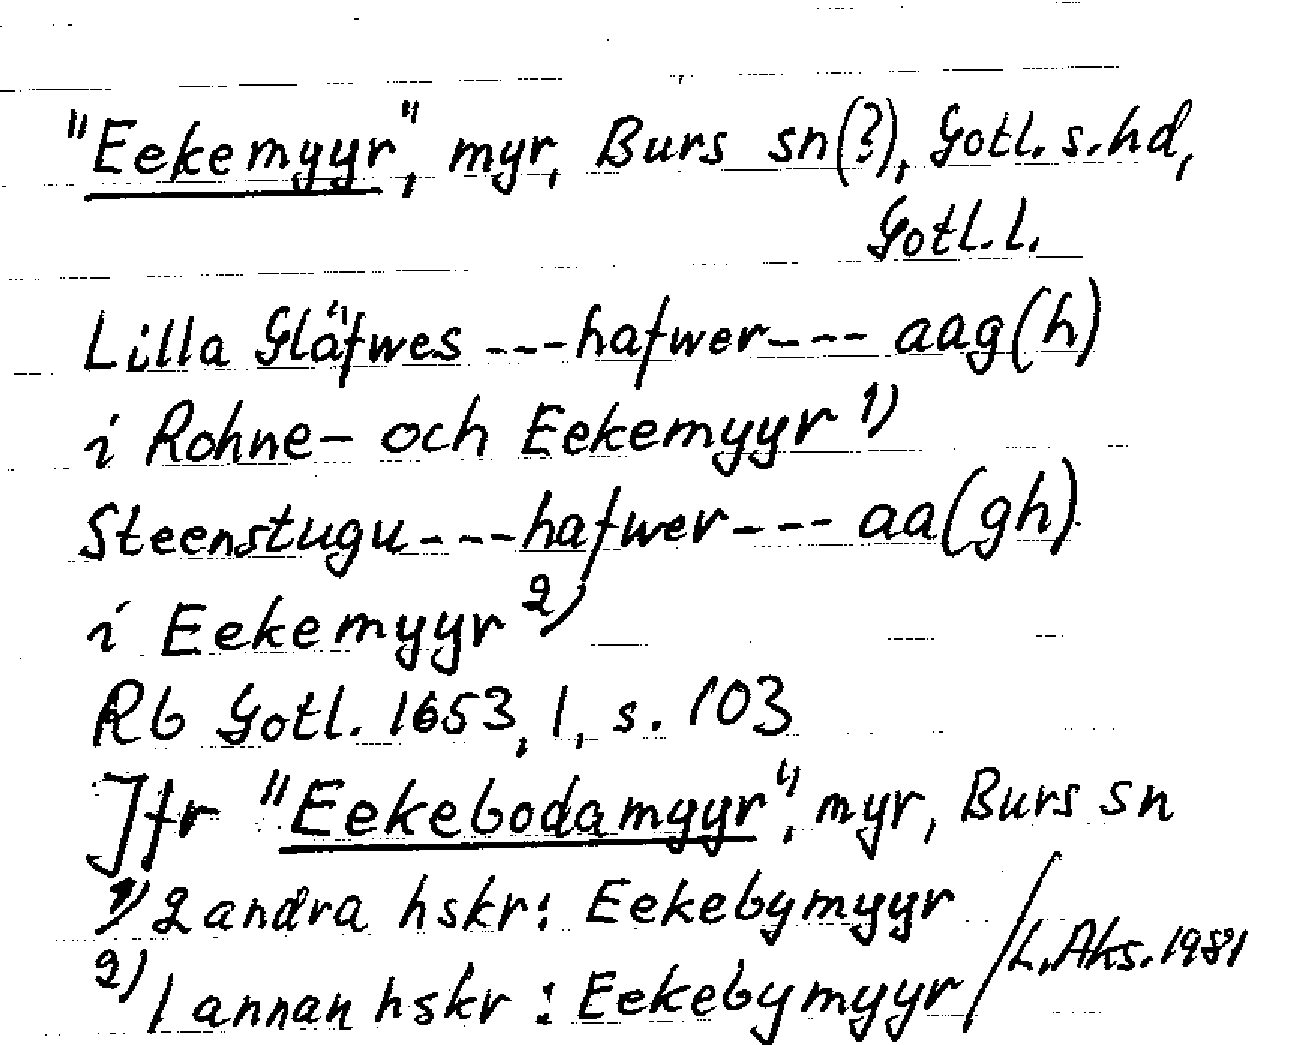 "Eekemyyr", myr, Burs sn(?), Gotl. s. hd,
Gotl. l.
Lilla Gläfwes ---hafwer---- aag(h)
i Rohne- och Eekemyyr 1)
Steenstugu----hafwer---- aa(gh)
i Eekemyyr 2)
Rb Gotl. 1653, 1, s. 103
Jfr "Eekebodamyyr", myr, Burs sn
1) 2 andra hskr: Eekebymyyr
2) 1 annan hskr: Eekebymyyr / L. Aks. 1981